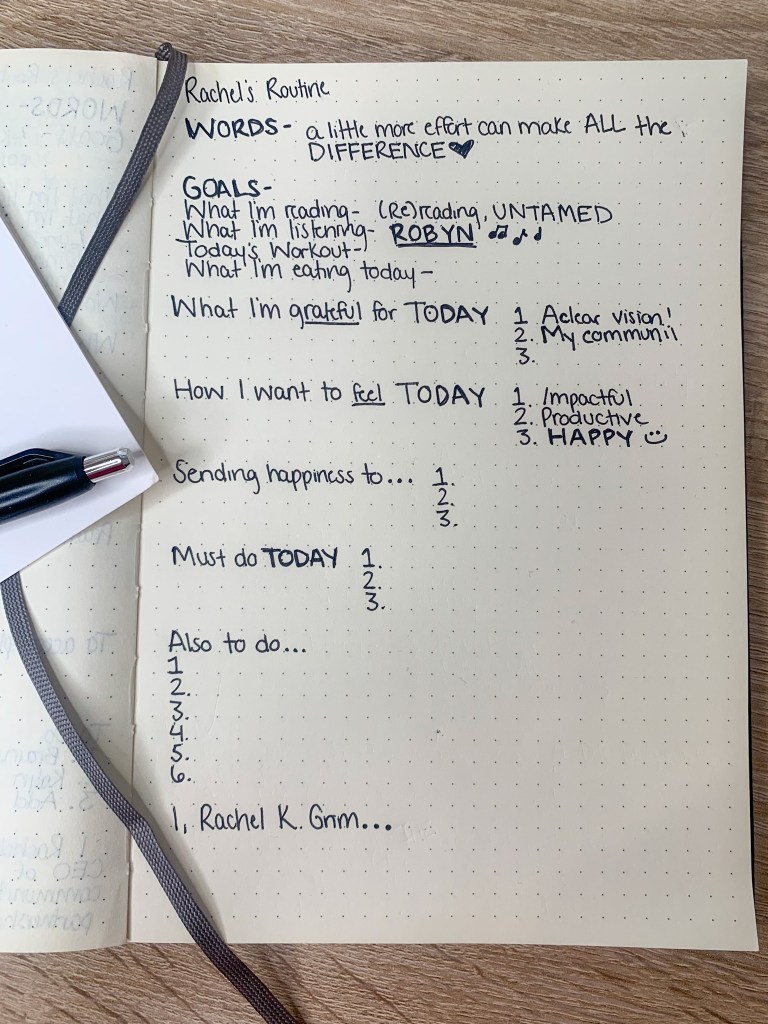 Rachel's Routine
WORDS- a little more effort can make ALL the
DIFFERENCE
GOALS-
What I'm reading- (Re)reading, UNTAMED
What I'm listening- ROBYN
Today's Workout-
What I'm eating today-
What I'm grateful for TODAY 1 A clear vision!
2. My communit
3.
How I want to feel TODAY 1. Impactful
2. Productive
3. HAPPY
Sending happiness to... 1.
2.
3.
Must do TODAY 1.
2.
3.
Also to do...
1
2.
3.
4.
5.
6.
I, Rachel K. Grim...